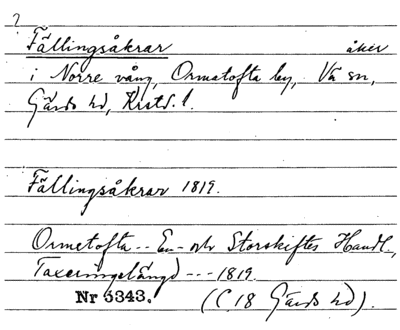 ?
Fällingsåkrar åker
i Norre vång, Ormatofta by, Vä sn,
Gärds hd, Krstd. l.
Fällingsåkrar 1819.
Ormetofta -- En- och Storskiftes Handl.,
Taxeringslängd --- 1819.
Nr 5343. (C. 18 Gärds hd).